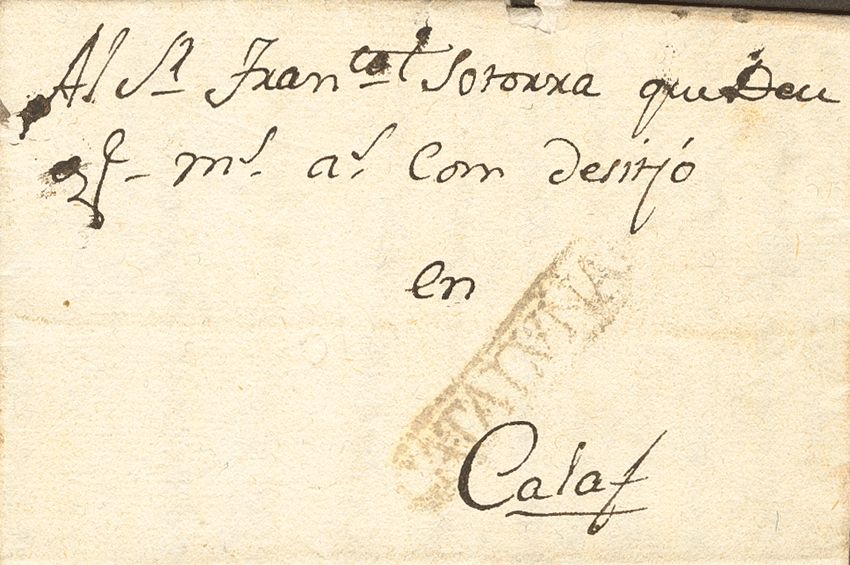 Al Sr. Franco. Sotorra que Deu
gª - ms. as. Com desitjó
en
CATALUÑA
Calaf